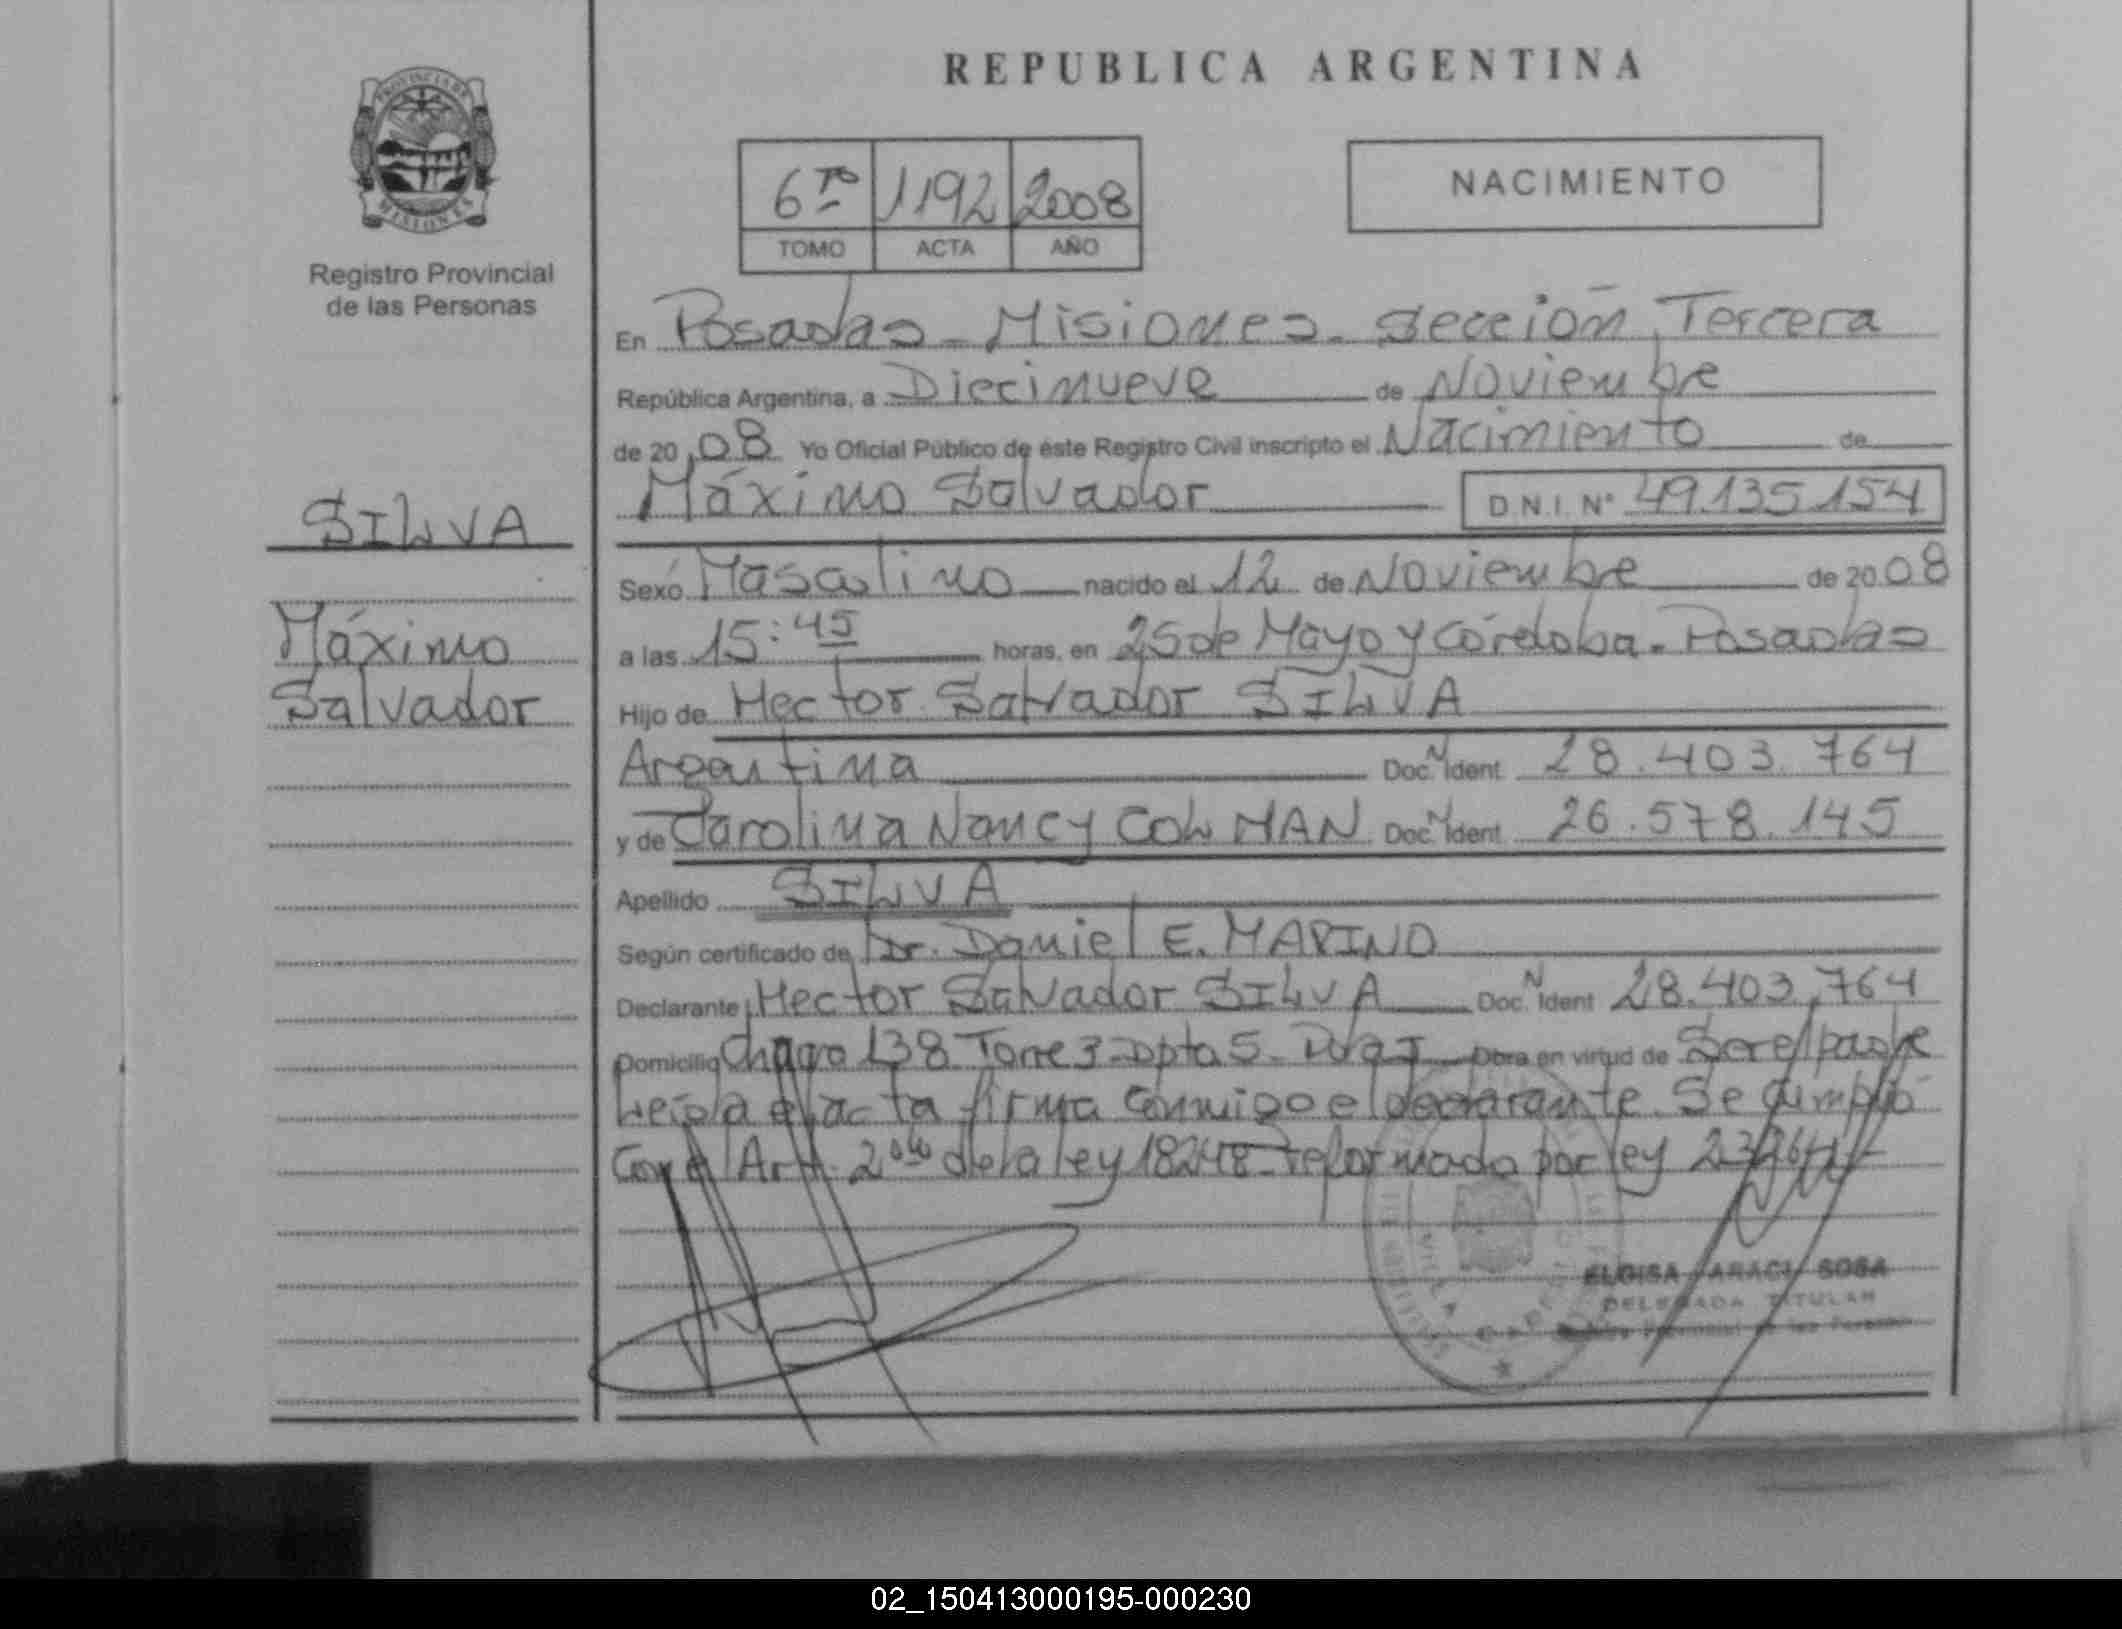 PROVINCIA DE
MISIONES
Registro Provincial
de las Personas
SILVA
Máximo
Salvador
REPUBLICA ARGENTINA
6to 1192 2008
TOMO ACTA AÑO
NACIMIENTO
En Posadas - Misiones - Sección Tercera
República Argentina, a Diecinueve de Noviembre
de 20 08 Yo Oficial Público de éste Registro Civil inscripto el Nacimiento de
Máximo Salvador D.N.I. Nº 49.135.154
Sexo Masculino nacido el 12 de Noviembre de 20 08
a las 15:45 horas, en 25 de Mayo y Córdoba - Posadas
Hijo de Hector Salvador SILVA
Argentina Doc. N Ident 28.403.764
y de Carolina Nancy COLMAN Doc. N Ident 26.578.145
Apellido SILVA
Según certificado de Dr. Daniel E. MARINO
Declarante Hector Salvador SILVA Doc. N Ident 28.403.764
Domicilio 138 Torre 3 - Dpto 5 - Obra en virtud de Ser el padre
Leída el acta firma conmigo el declarante. Se cumplió
Con el Art. 2 de la ley 18248 reformado por ley
ELOISA ARACI SOSA
DELEGADA TITULAR
Provincial de las Personas
02_150413000195-000230